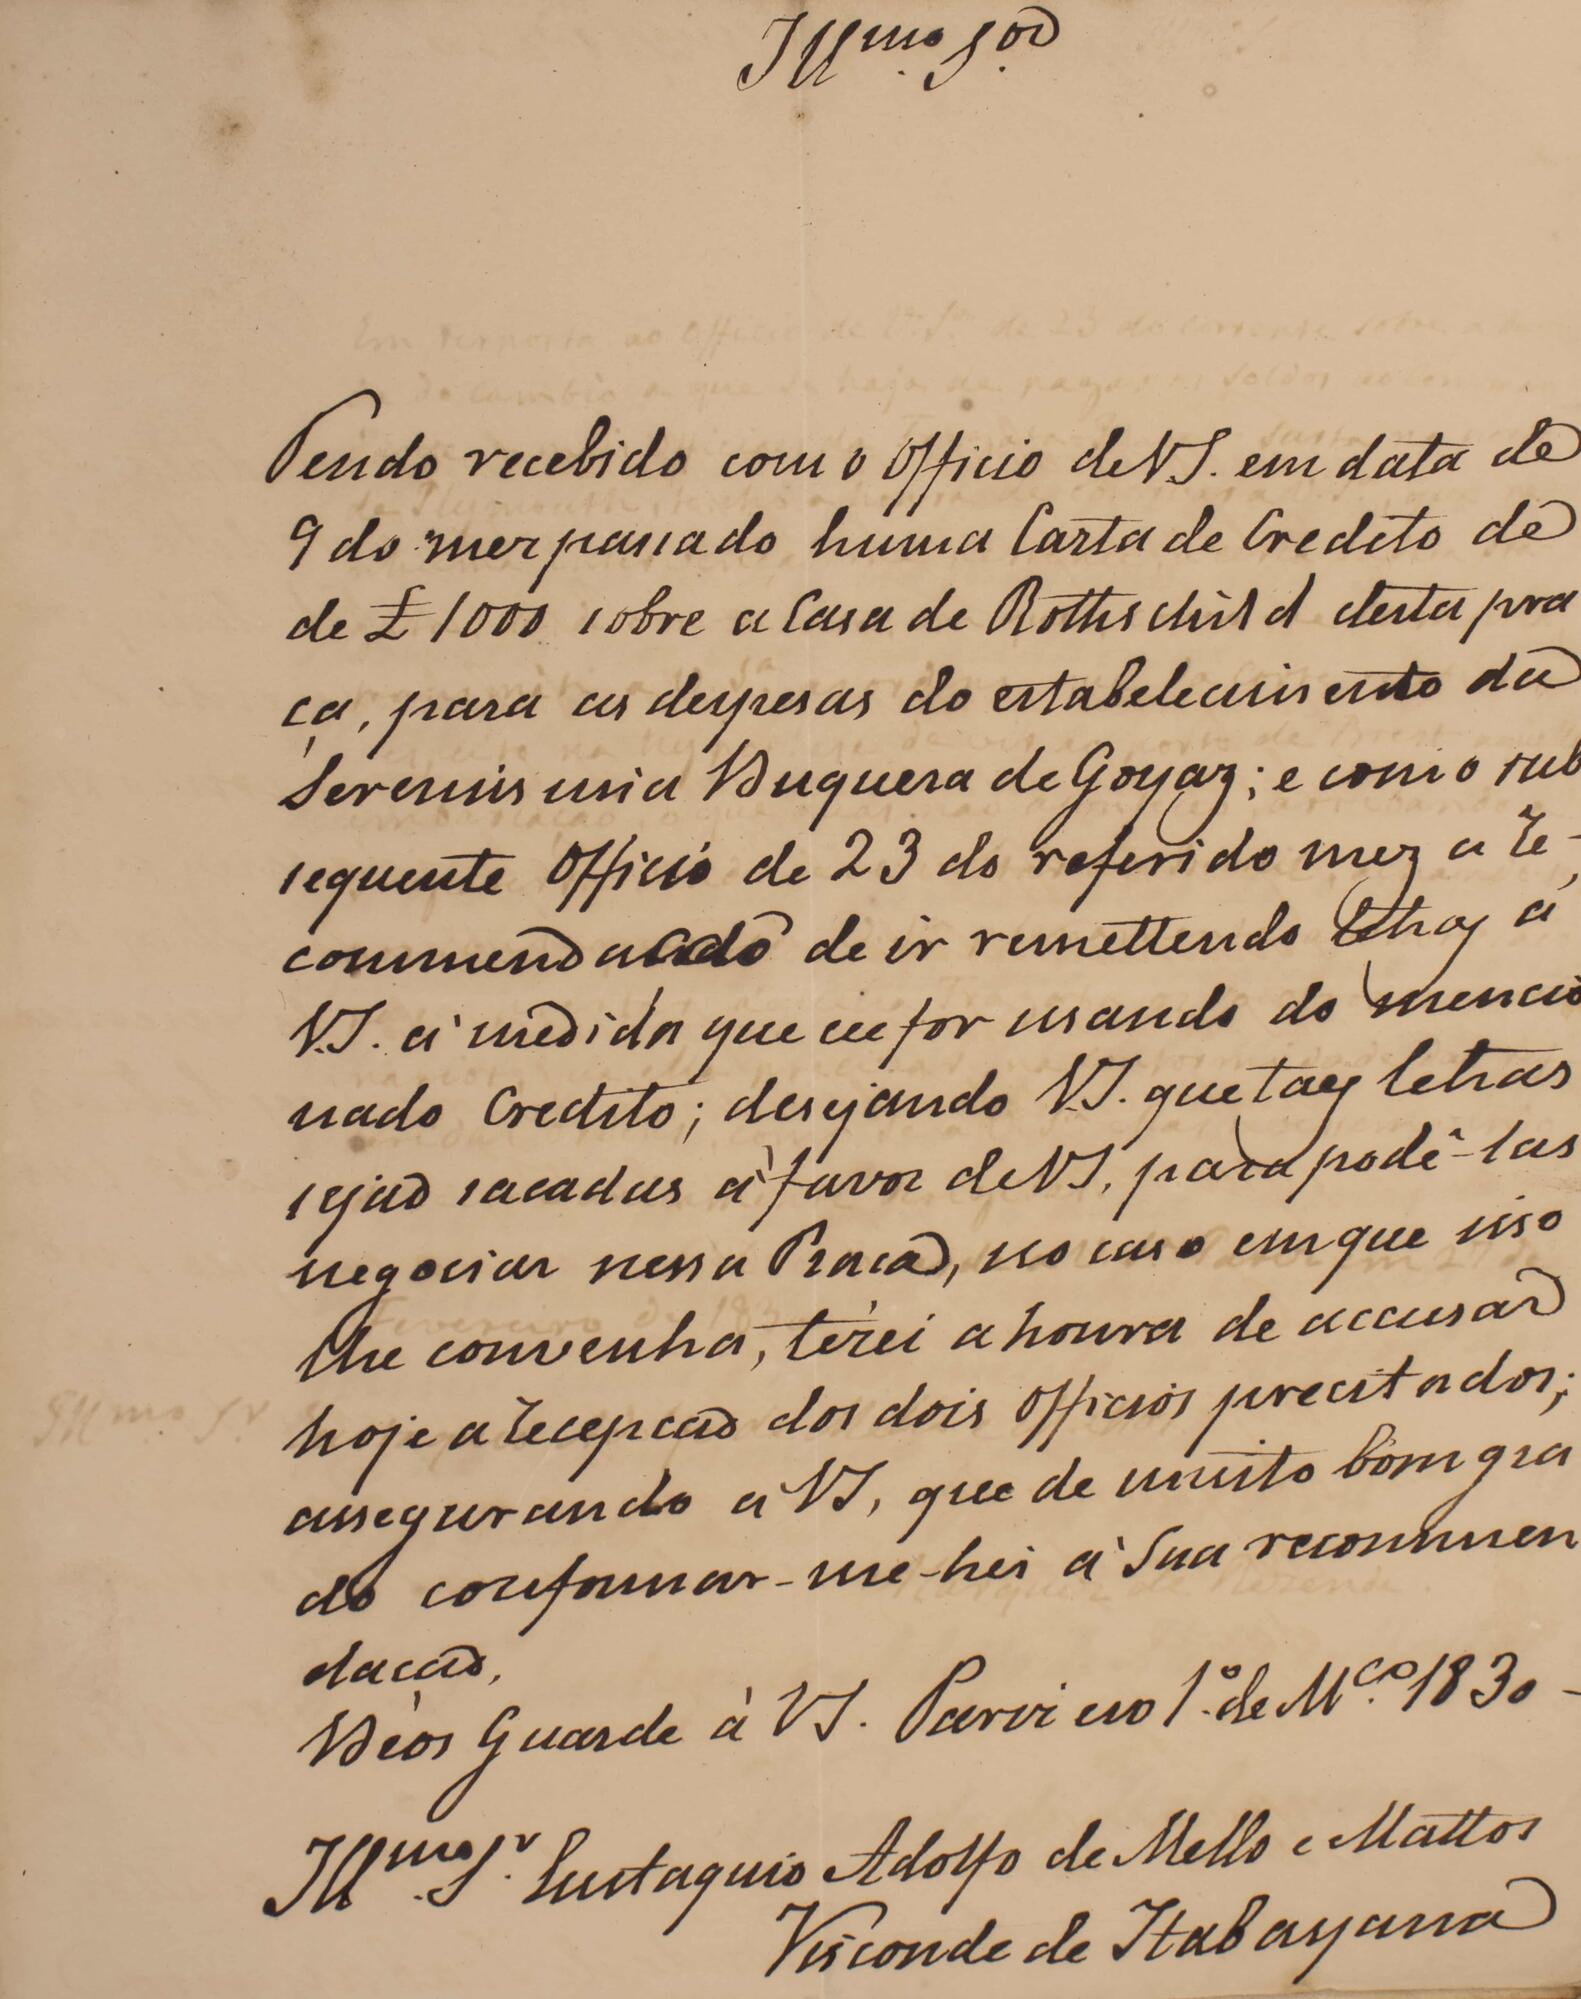 Illmo. Sor.
Tendo recebido com o Officio de V.S. em data de
9 do mez passado huma Carta de Credito de
de £ 1000 sobre a Casa de Rothschild desta pra
ça, para as despesas do estabelecimento da
Serenissima Duqueza de Goyaz; e com o sub
sequente Officio de 23 do referido mez a re-
commendacão de ir remettendo lhas á
V.S. á medida que eu for usando do mencio
nado Credito; desejando V.S. que taes letras
sejão sacadas á favor de V.S. para podê-las
negociar nessa Praça, no caso em que isso
lhe convenha, terei a honra de accusar
hoje a recepção dos dois Officios precitados;
assegurando á V.S, que de muito bom gra
do conformar-me-hei á Sua recommen
dação.
Déos Guarde á V.S. Pariz em 1.º de Mço. 1830-
Illmo. Sr. Eustaquio Adolfo de Mello e Mattos
Visconde de Itabayana